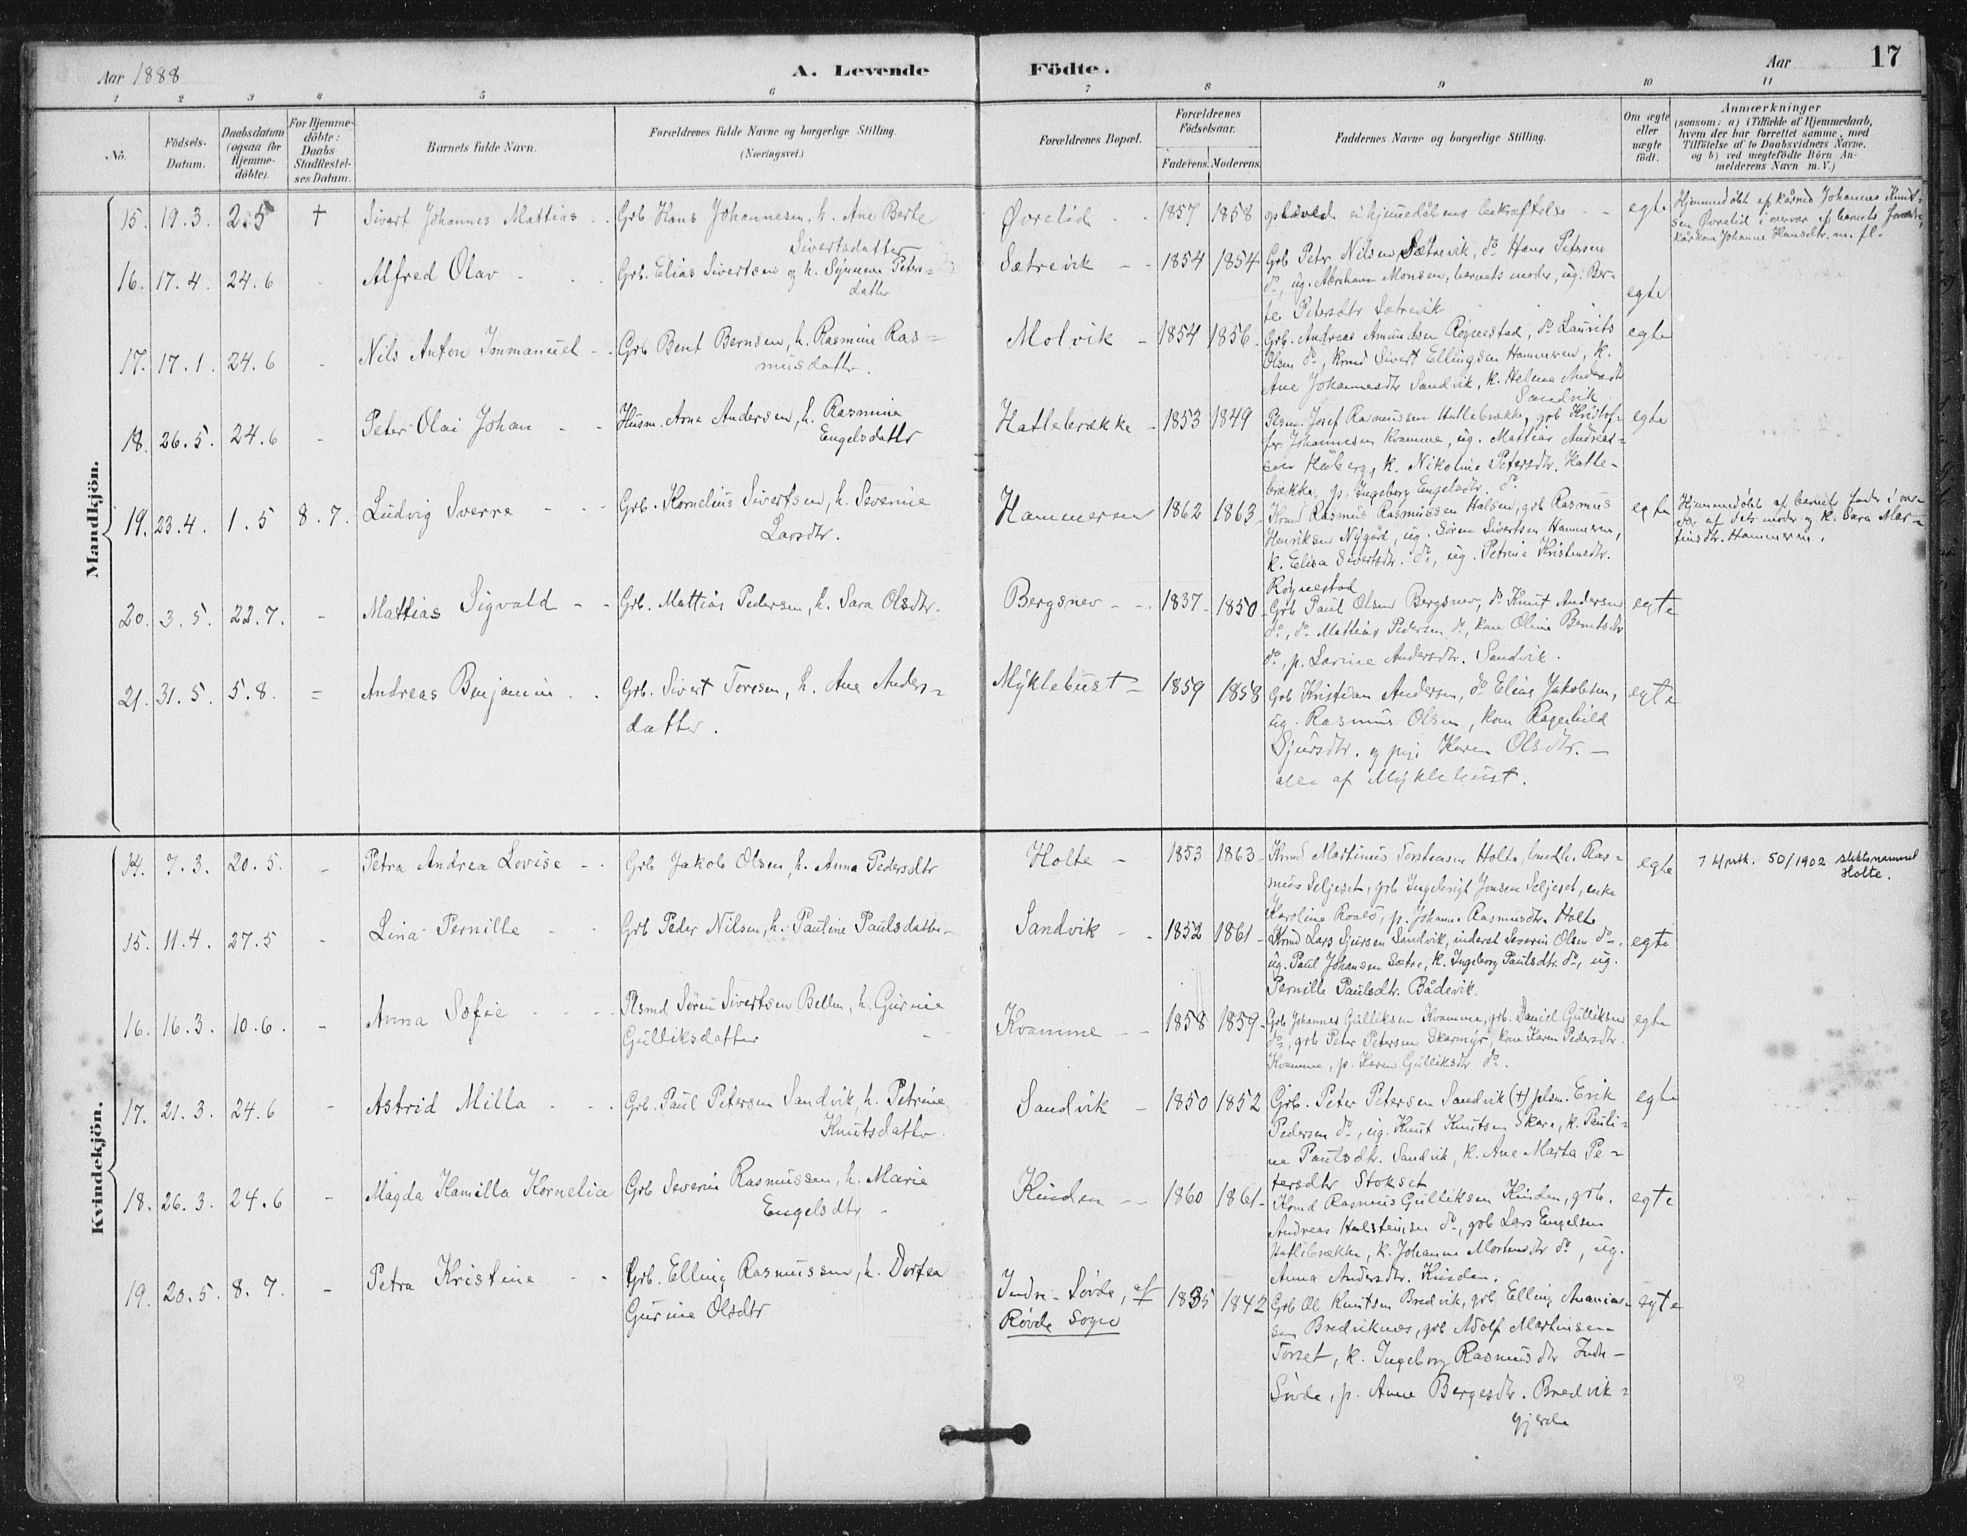 Aar 1888
A. Levende Födte.
Aar
17
1 2 3 4 5 6 7 8 9 10 11
No.
Födsels-
Datum.
Daabsdatum
(ogsaa for
Hjemme-
döbte).
For Hjemme-
döbte:
Daabs
Stadfæstel-
ses Datum.
Barnets fulde Navn.
Forældrenes fulde Navne og borgerlige Stilling.
(Næringsvei.)
Forældrenes Bopæl.
Forældrenes
Födselsaar.
Faderens. Moderens.
Faddernes Navne og borgerlige Stilling.
Om ægte
eller
uægte
födt.
Anmærkninger
(saasom: a) i Tilfælde af Hjemmedaab,
hvem der har forrettet samme, med
Tilföielse af to Daabsvidners Navne.
og b) ved uægtefödte Börn An-
melderens Navn m. V.)
Mandkjön.
15. 19.3. 2.5 † Sivert Johannes Mattias - Grb Hans Johannesen, h. Ane Berte
Sivertsdatter
Øvrelid 1857 1858 hjemmedåbens bekræftelse - - egte
Hjemmedøbt af kårmd Johannes Knut-
sen Øvrelid i nærvær af barnets
kårkone Johanne Hansdtr. m. fl.
16. 17.4. 24.6 Alfred Olav - Grb. Elias Sivertsen og h. Synneve Peters-
datter
Sætrevik - - 1854 1854 Grb Peter Nilsen Sætrevik, do Hans Petersen
do, ug. Abraham Monsen, barnets moder, ug. Ber-
te Petersdtr Sætrevik
egte
17. 17.1. 24.6 - Nils Anton Immanuel - Grb Bent Berntsen, h. Rasmine Ras-
musdattr.
Molvik - 1854 1856 Grb. Andreas Amundsen Røynestad, do Laurits
Olsen do, krmd Sivert Ellingsen Hammeren, k.
Ane Johannesdtr Sandvik, k. Helene Andersdtr
Sandvik
egte
18. 26.5. 24.6 - Peter Olai Johan - - Husm. Arne Andersen, h. Rasmine
Engelsdattr
Hatlebrække - 1853 1849 Plsm. Josef Rasmussen Hatlebrække, grb Kristof-
fer Johannesen Kvamme, ug. Mattias Andreas-
sen Håberg, k. Nikoline Petersdtr. Hatle-
brække, p. Ingeborg Engelsdtr. do
egte
19. 23.4. 1.5 8.7. Ludvig Sverre - - Grb. Kornelius Sivertsen, h. Severine
Larsdtr.
Hammeren 1862 1863 Krmd Rasmus Rasmussen Halsen, grb Rasmus
Henriksen Nygård, ug. Søren Sivertsen Hammeren,
k. Elisa Sivertsdtr. do, ug. Petrine Kristensdtr.
Røynestad
egte
Hjemmedøbt af barnets fader i nær-
vær af dets moder og k. Sara Mar-
tinsdtr. Hammeren.
20. 3.5. 22.7. - Mattias Sigvald - - Grb. Mattias Pedersen, h. Sara Olsdtr.
Bergsnev - - 1837 1850 Grb Paul Olsen Bergsnev, do Knut Andersen
do, do Mattias Pedersen do, kone Oline Berntsdtr
do, p. Lavine Andersdtr. Sandvik.
egte
21. 31.5. 5.8. = Andreas Benjamin - Grb. Sivert Toresen, h. Ane Anders-
datter.
Myklebust - 1859 1858 Grb Kristian Andersen, do Elias Jakobsen,
ug. Rasmus Olsen, kone Ragnhild
Sjursdtr. og pige Karen Olsdtr. -
alle af Myklebust.
egte
Kvindekjön.
14. 7.3. 20.5. - Petra Andrea Lovise - - Grb Jakob Olsen, h. Anna Pedersdtr
Holte - 1853 1863 Krmd Martinus Torstensen Holte, landh. Ras-
mus Seljeset, grb Ingebrigt Jonsen Seljeset, enke
Karoline Roald, p. Johanne Rasmusdtr. Holte
egte
50/1902 slektsnamnet
Holte.
15. 11.4. 27.5 - Lina Pernille - - Grb Peder Nilsen, h. Pauline Paulsdatter
Sandvik - - 1852 1861 Krmd Lars Sjursen Sandvik, inderst Severin Olsen do,
ug. Paul Johansen Sætre, k. Ingeborg Paulsdtr. do, ug.
Pernille Paulsdtr. Bådsvik.
egte
16. 16.3. 10.6. - Anna Sofie - - - Plsmd Søren Sivertsen Bellen, h. Gurine
Gulliksdatter
Kvamme - - 1858 1859 Grb Johannes Gulliksen Kvamme, grb. Daniel Gulliksen
do, grb Peter Petersen Skarmyr, kone Karen Pedersdtr.
Kvamme, p. Karen Gulliksdtr do.
egte
17. 21.3. 24.6 - Astrid Milla - - - Grb. Paul Petersen Sandvik, h. Petrine
Knutsdattr
Sandvik - 1850 1852 Grb. Peter Petersen Sandvik (†) plsm. Erik
Pedersen do, ug. Knut Knutsen Skare, k. Pauli-
ne Paulsdtr. Sandvik, k. Ane Marta Pe-
tersdtr Stokset
egte
18. 26.3. 24.6 - Magda Kamilla Kornelia Grb Severin Rasmussen, h. Marie
Engelsdtr -
Hinden - - 1860 1861 Krmd Rasmus Gulliksen Hinden, grb.
Andreas Halsteinsen do, grb Lars Engelsen
Hatlebrække, k. Johanne Mortensdtr do, ug.
Anna Andersdtr. Hinden.
egte
19. 20.5. 8.7. - Petra Kristine - - Grb. Elling Rasmussen, h. Dortea
Gurine Olsdtr
Indre-Søvde, af
Røvde Sogn
1835 1842 Grb Ole Knutsen Bredvik, grb Elling Ananias-
sen Brediknes, grb Adolf Martinsen
Torset, k. Ingeborg Rasmusdtr Indre-
Søvde, p. Anne Bergesdtr. Bredvik-
gjerde
egte